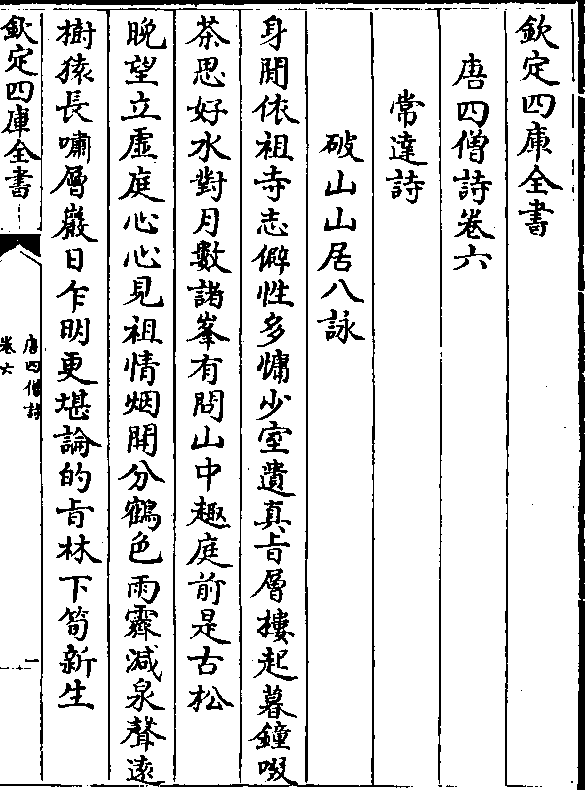 欽定四庫全書
唐四僧詩卷六
常達詩
破山山居八詠
身閒依祖寺志僻性多慵少室遺真㫖層樓起暮鐘啜
茶思好水對月數諸峯有問山中趣庭前是古松
晚望立虛庭心心見祖情烟開分鶴色雨霽減泉聲遠
樹猿長嘯層巖日乍明更堪論的㫖林下筍新生
欽定四庫全書
唐四僧詩
卷六
一